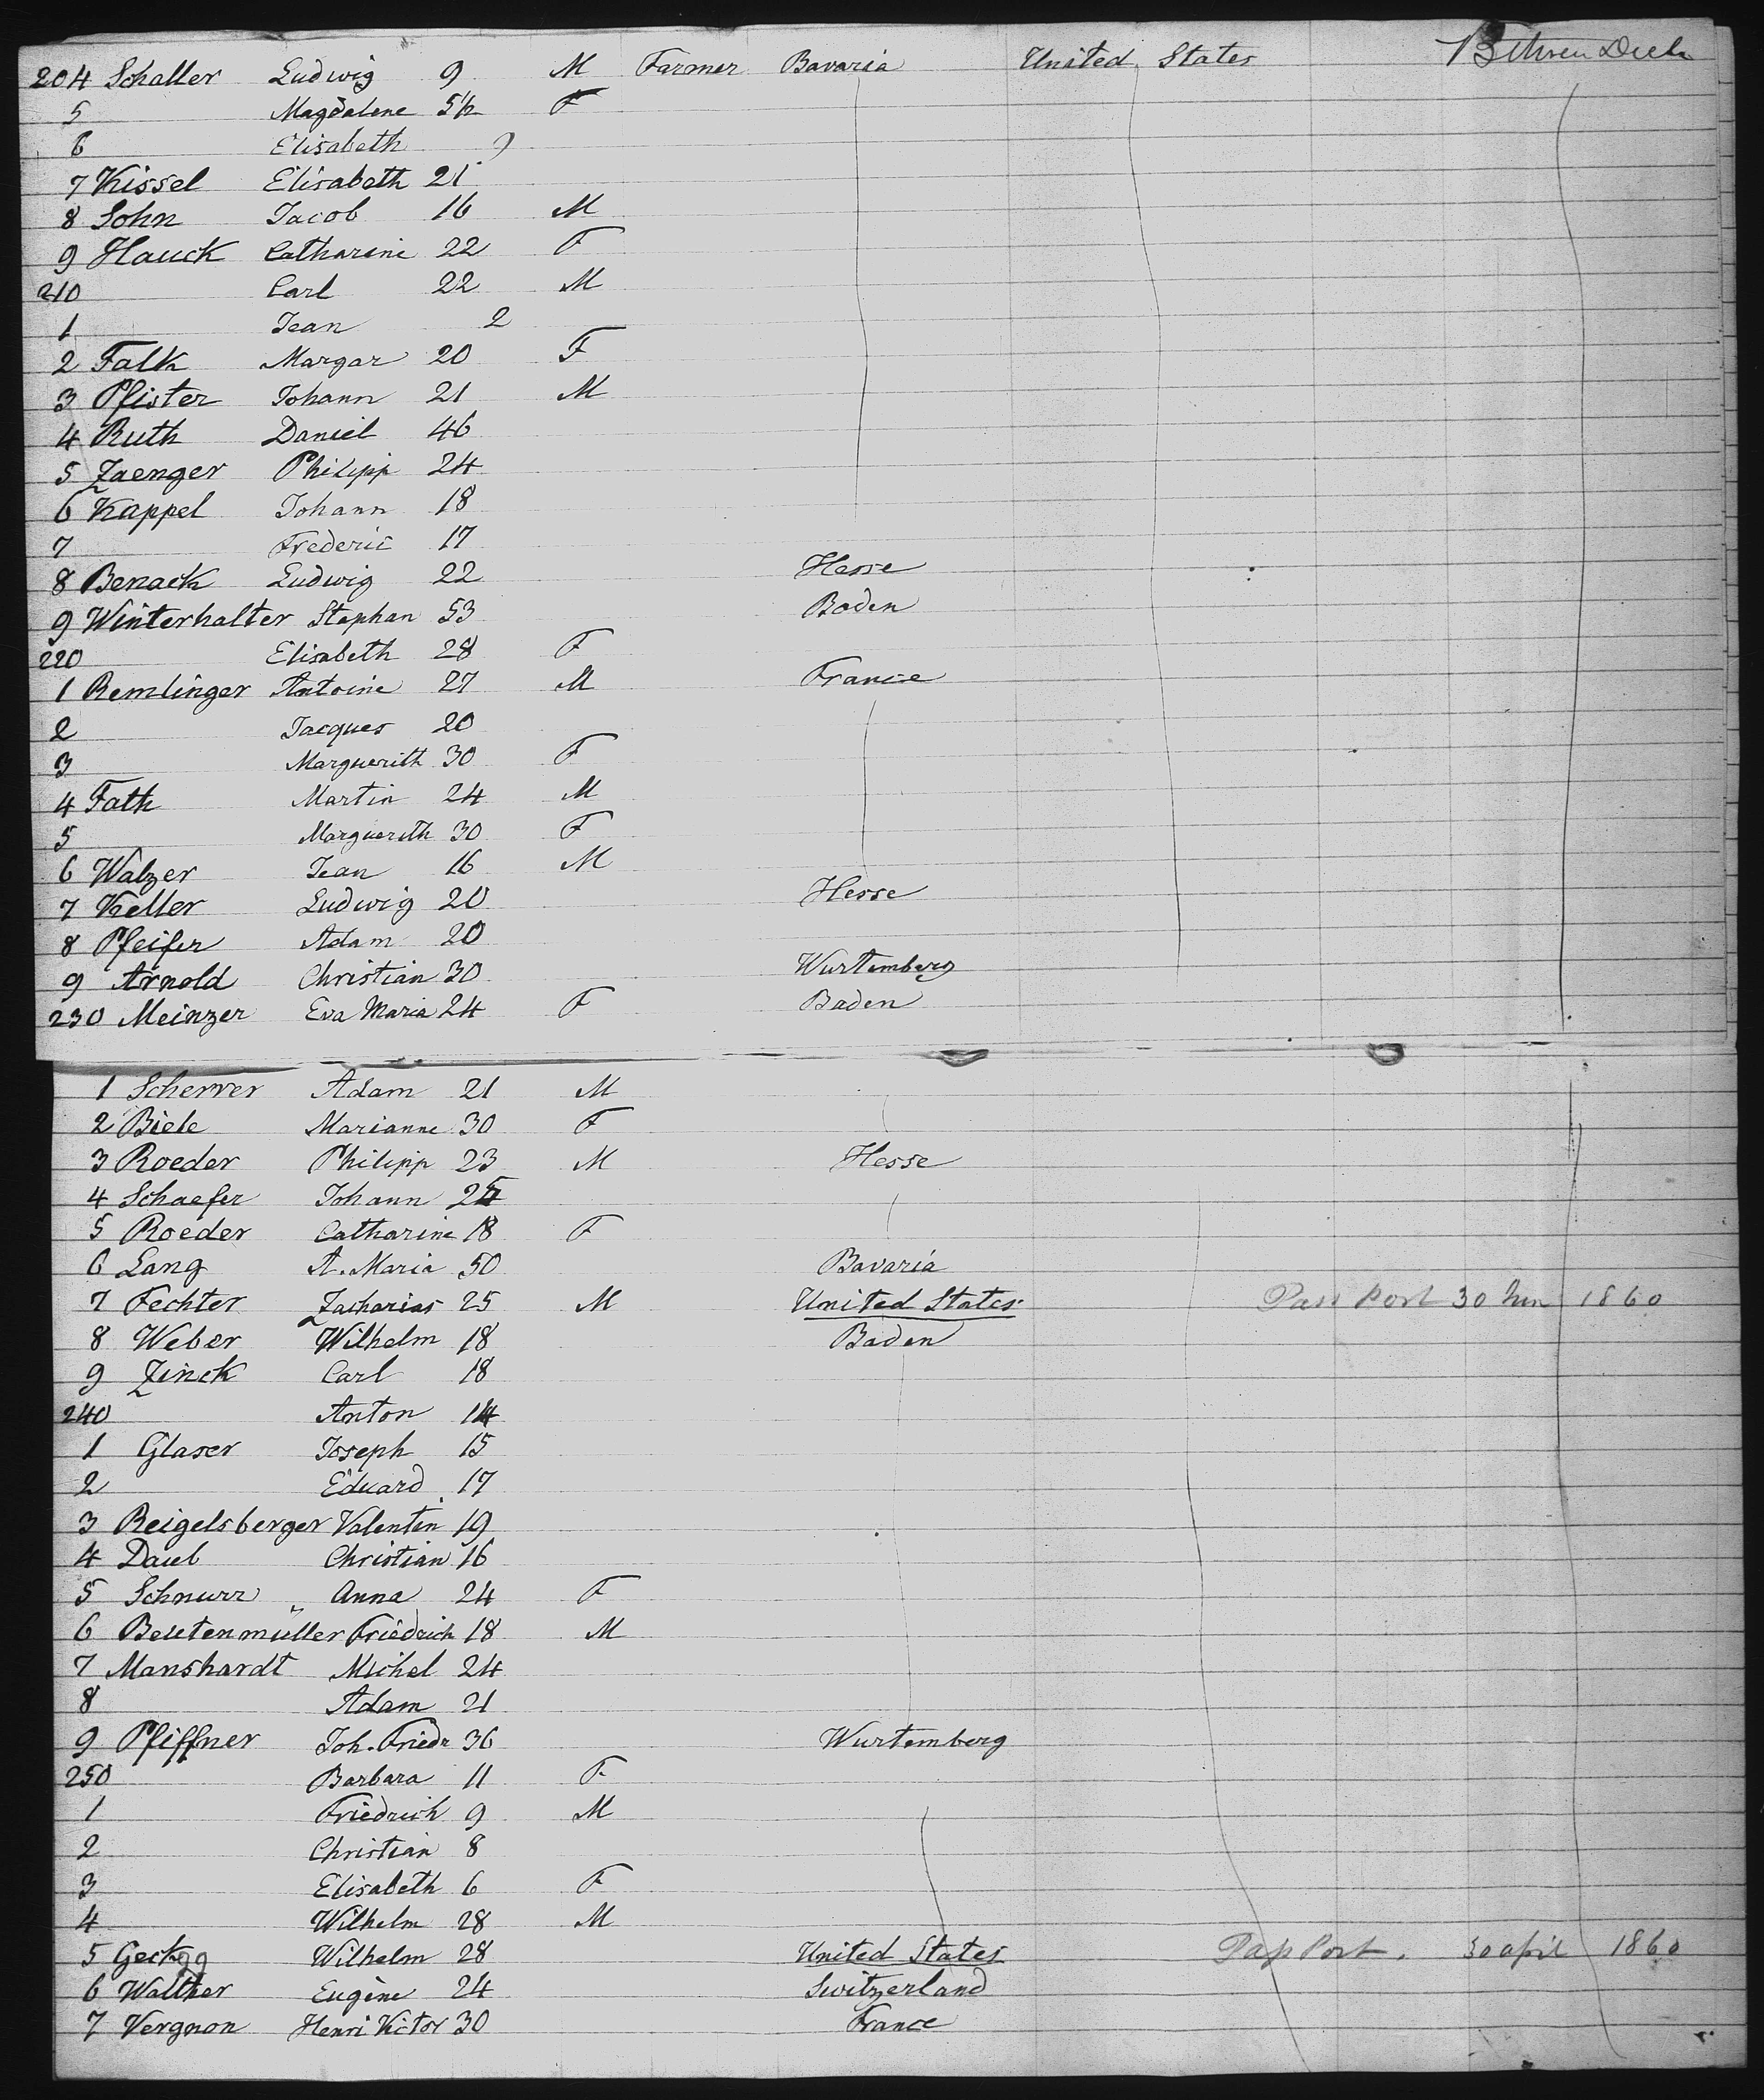 204 Schaller Ludwig 9 M Farmer Bavaria United States
5 Magdalene 5½ F
6 Elisabeth 9
7 Kissel Elisabeth 21
8 Sohn Jacob 16 M
9 Hauck Catharine 22 F
210 Carl 22 M
1 Jean 2
2 Falk Margar 20 F
3 Pfister Johann 21 M
4 Ruth Daniel 46
5 Zaenger Philipp 24
6 Kappel Johann 18
7 Frederic 17
8 Benack Ludwig 22 Hesse
9 Winterhalter Stephan 53 Baden
220 Elisabeth 28 F
1 Remlinger Antoine 27 M France
2 Jacques 20
3 Marguerith 30 F
4 Fath Martin 24 M
5 Marguerith 30 F
6 Walzer Jean 16 M
7 Keller Ludwig 20 Hesse
8 Pfeifer Adam 20
9 Arnold Christian 30 Wurtemberg
230 Meinzer Eva Maria 24 F Baden
1 Scherrer Adam 21 M
2 Biele Marianne 30 F
3 Roeder Philipp 23 M Hesse
4 Schaefer Johann
5 Roeder Catharine 18 F
6 Lang A. Maria 50 Bavaria
7 Fechter Zacharias 25 M United States Pass Port 30 1860
8 Weber Wilhelm 18 Baden
9 Zinck Carl 18
240 Anton 14
1 Glaser Joseph 15
2 Eduard 17
3 Reigelsberger Valentin 19
4 Daub Christian 16
5 Schnurr Anna 24 F
6 Beutenmüller Friedrich 18 M
7 Manshardt Michel 24
8 Adam 21
9 Pfiffner Joh. Friedr 36 Wurtemberg
250 Barbara 11 F
1 Friedrich 9 M
2 Christian 8
3 Elisabeth 6 F
4 Wilhelm 28 M
5 Wilhelm 28 United States Pass Port. 30 april 1860
6 Walther Eugène 24 Switzerland
7 Vergnon Henri Victor 30 France